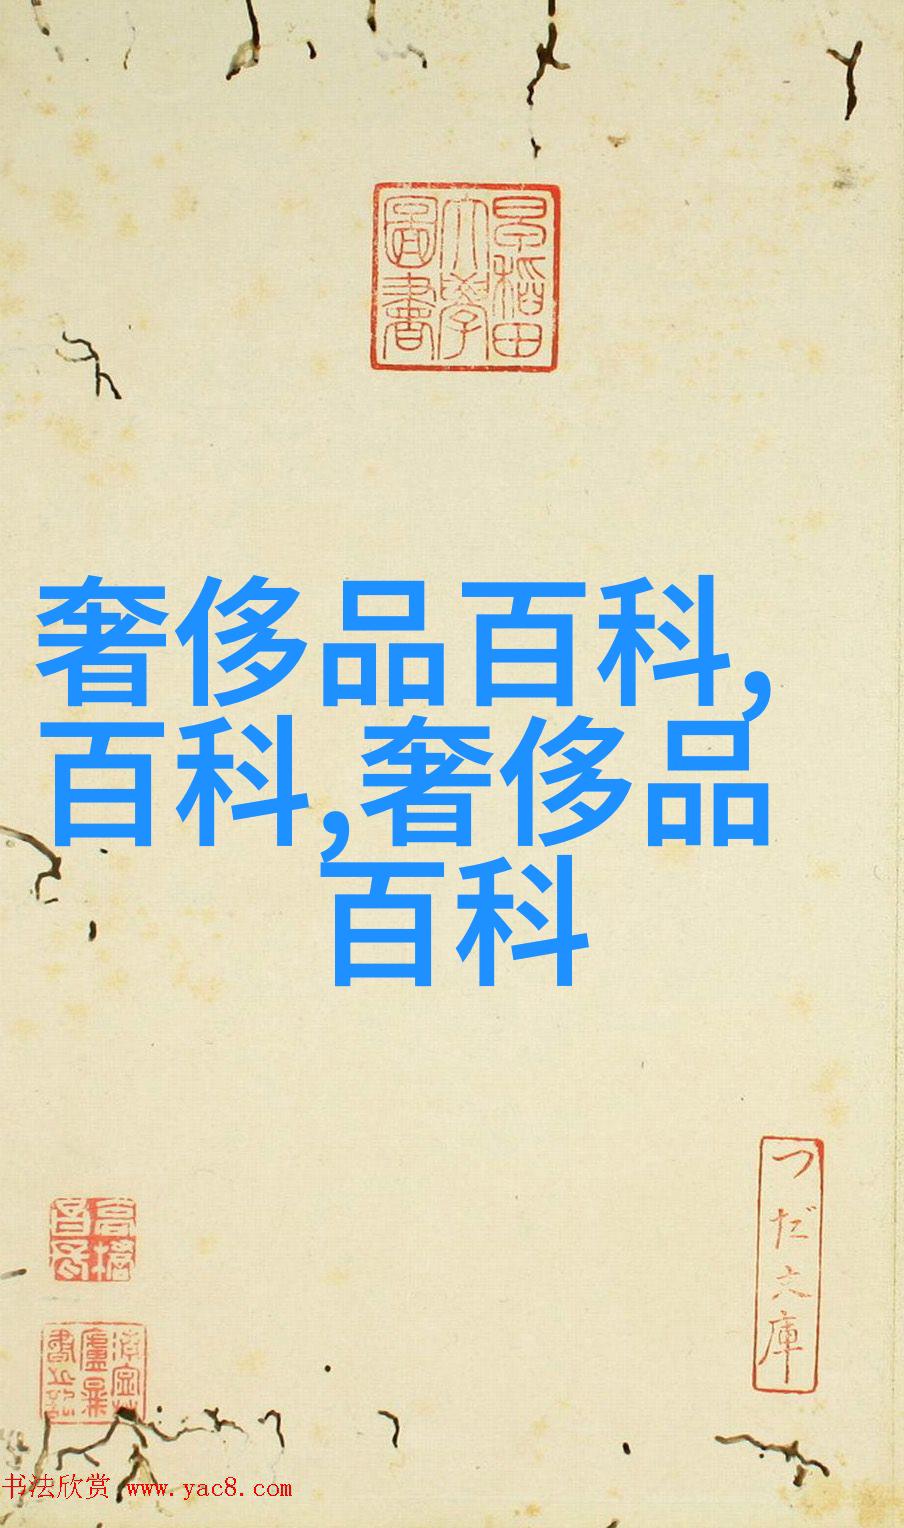 早稲田
大學
圖書
奢侈品百科,
百科,奢侈品
百科
つだ文庫
书法欣赏 www.yac8.com